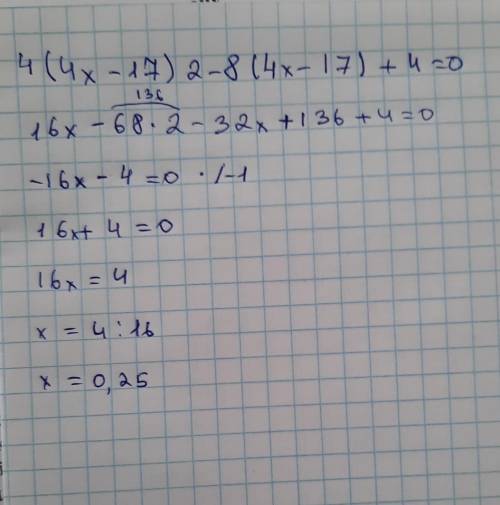 4(4x-17)2-8(4x-17)+4=0
136
16x-68·2-32x+136+4=0
-16x-4=0 ·/-1
16x+4=0
16x=4
x=4:16
x=0,25